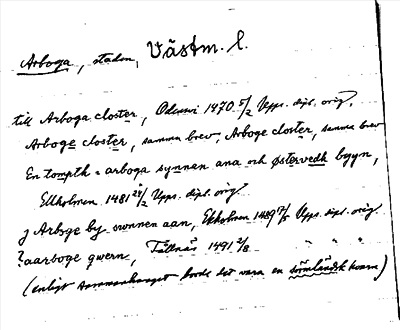 Arboga, staden, Västm. l.
till Arboga closter, Odensvi 1470 5/2 Upps. dipl. orig.
Arboge closter, samma brev, Arboge closter, samma brev
En tompth i arboga synnen ana och østervedh bygn,
Ekholmen 1481 24/2 Upps. dipl. orig
j Arboge by swnnen aan, Ekholmen 1489 7/5 Upps. dipl. orig.
?aarboge qwern, Tällnäs 1491 2/8 " " "
(enligt sammanhanget borde det vara en sörmländsk kvarn)